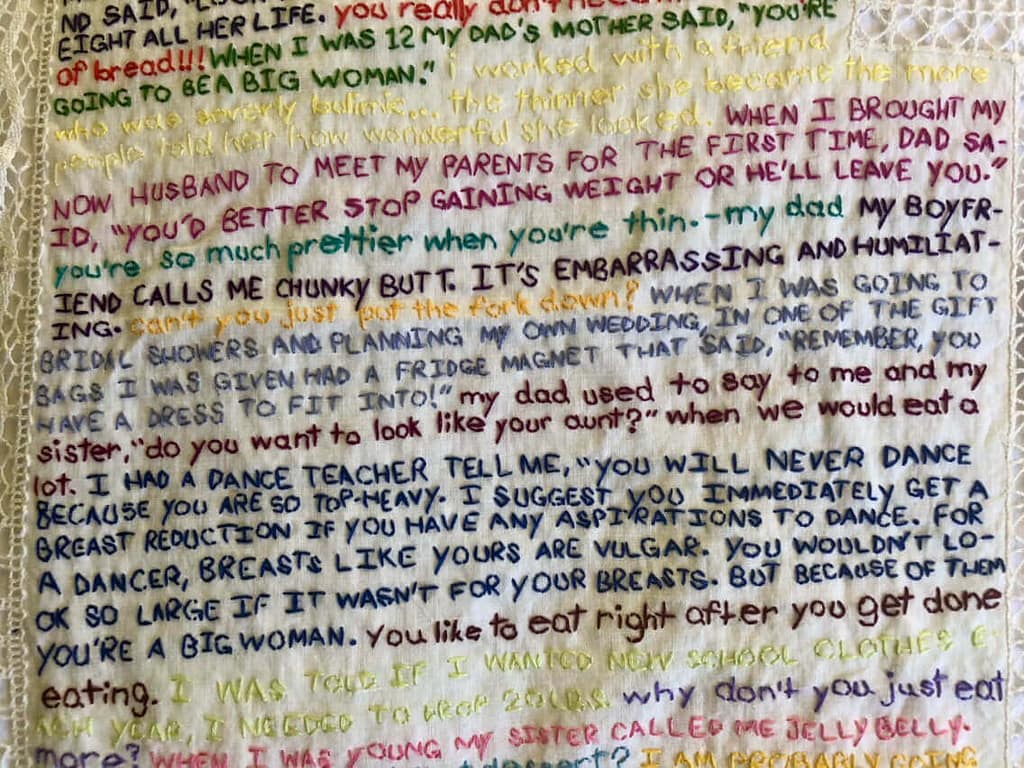 ND SAID,
EIGHT ALL HER LIFE. you really don't
of bread!!! WHEN I WAS 12 MY DAD'S MOTHER SAID, "YOU'RE
GOING TO BE A BIG WOMAN." i worked with a friend
who was severly bulimic... the thinner she became the more
people told her how wonderful she looked. WHEN I BROUGHT MY
NOW HUSBAND TO MEET MY PARENTS FOR THE FIRST TIME, DAD SA-
ID, "YOU'D BETTER STOP GAINING WEIGHT OR HE'LL LEAVE YOU."
you're so much prettier when you're thin. - my dad MY BOYFR-
IEND CALLS ME CHUNKY BUTT. IT'S EMBARRASSING AND HUMILIAT-
ING. can't you just put the fork down? WHEN I WAS GOING TO
BRIDAL SHOWERS AND PLANNING MY OWN WEDDING, IN ONE OF THE GIFT
BAGS I WAS GIVEN HAD A FRIDGE MAGNET THAT SAID, "REMEMBER, YOU
HAVE A DRESS TO FIT INTO!" my dad used to say to me and my
sister, "do you want to look like your aunt?" when we would eat a
lot. I HAD A DANCE TEACHER TELL ME, "YOU WILL NEVER DANCE
BECAUSE YOU ARE SO TOP-HEAVY. I SUGGEST YOU IMMEDIATELY GET A
BREAST REDUCTION IF YOU HAVE ANY ASPIRATIONS TO DANCE. FOR
A DANCER, BREASTS LIKE YOURS ARE VULGAR. YOU WOULDN'T LO-
OK SO LARGE IF IT WASN'T FOR YOUR BREASTS. BUT BECAUSE OF THEM
YOU'RE A BIG WOMAN. You like to eat right after you get done
eating. I WAS TOLD IF I WANTED NEW SCHOOL CLOTHES E-
ACH YEAR, I NEEDED TO DROP 20LBS. why don't you just eat
more? WHEN I WAS YOUNG MY SISTER CALLED ME JELLY BELLY.
dessert? I AM PROBABLY GOING